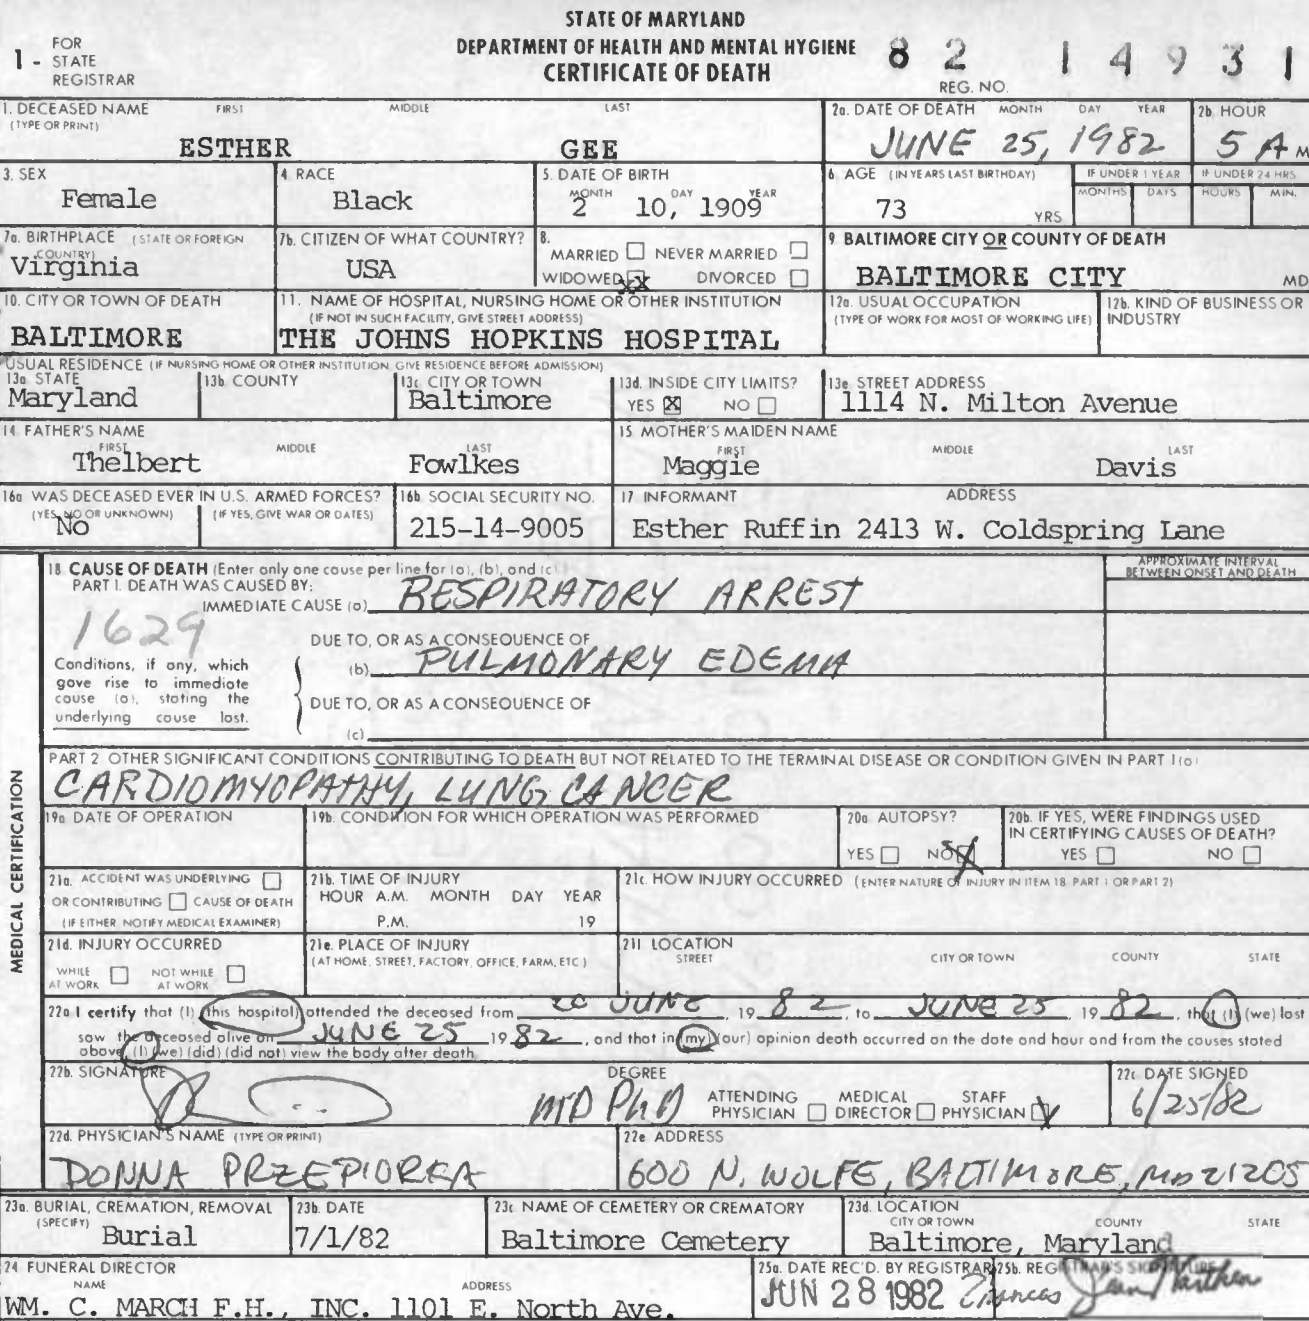 STATE OF MARYLAND
DEPARTMENT OF HEALTH AND MENTAL HYGIENE
CERTIFICATE OF DEATH
1 - FOR STATE REGISTRAR
82 14931
REG. NO.
1. DECEASED NAME (TYPE OR PRINT) FIRST MIDDLE LAST
ESTHER GEE
2a. DATE OF DEATH MONTH DAY YEAR
JUNE 25, 1982
2b. HOUR
5 A M
3. SEX
Female
4. RACE
Black
5. DATE OF BIRTH
MONTH DAY YEAR
2 10, 1909
6. AGE (IN YEARS LAST BIRTHDAY)
73 YRS
IF UNDER 1 YEAR
MONTHS DAYS
IF UNDER 24 HRS
HOURS MIN.
7a. BIRTHPLACE (STATE OR FOREIGN COUNTRY)
Virginia
7b. CITIZEN OF WHAT COUNTRY?
USA
8.
MARRIED NEVER MARRIED
WIDOWED xx DIVORCED
9 BALTIMORE CITY OR COUNTY OF DEATH
BALTIMORE CITY MD
10. CITY OR TOWN OF DEATH
BALTIMORE
11. NAME OF HOSPITAL, NURSING HOME OR OTHER INSTITUTION
(IF NOT IN SUCH FACILITY, GIVE STREET ADDRESS)
THE JOHNS HOPKINS HOSPITAL
12a. USUAL OCCUPATION
(TYPE OF WORK FOR MOST OF WORKING LIFE)
12b. KIND OF BUSINESS OR INDUSTRY
USUAL RESIDENCE (IF NURSING HOME OR OTHER INSTITUTION GIVE RESIDENCE BEFORE ADMISSION)
13a STATE
Maryland
13b COUNTY
13c CITY OR TOWN
Baltimore
13d. INSIDE CITY LIMITS?
YES X NO
13e STREET ADDRESS
1114 N. Milton Avenue
14. FATHER'S NAME
FIRST MIDDLE LAST
Thelbert Fowlkes
15. MOTHER'S MAIDEN NAME
FIRST MIDDLE LAST
Maggie Davis
16a WAS DECEASED EVER IN U.S. ARMED FORCES?
(YES, NO OR UNKNOWN) (IF YES, GIVE WAR OR DATES)
No
16b SOCIAL SECURITY NO.
215-14-9005
17 INFORMANT ADDRESS
Esther Ruffin 2413 W. Coldspring Lane
MEDICAL CERTIFICATION
18 CAUSE OF DEATH (Enter only one cause per line for (a), (b), and (c)
PART I. DEATH WAS CAUSED BY:
IMMEDIATE CAUSE (a) RESPIRATORY ARREST
APPROXIMATE INTERVAL BETWEEN ONSET AND DEATH
1629
Conditions, if any, which
gave rise to immediate
cause (a), stating the
underlying cause last.
DUE TO, OR AS A CONSEQUENCE OF
(b) PULMONARY EDEMA
DUE TO, OR AS A CONSEQUENCE OF
(c)
PART 2 OTHER SIGNIFICANT CONDITIONS CONTRIBUTING TO DEATH BUT NOT RELATED TO THE TERMINAL DISEASE OR CONDITION GIVEN IN PART I (a)
CARDIOMYOPATHY, LUNG CANCER
19a DATE OF OPERATION
19b. CONDITION FOR WHICH OPERATION WAS PERFORMED
20a AUTOPSY?
YES NO X
20b. IF YES, WERE FINDINGS USED
IN CERTIFYING CAUSES OF DEATH?
YES NO
21a. ACCIDENT WAS UNDERLYING
OR CONTRIBUTING CAUSE OF DEATH
(IF EITHER NOTIFY MEDICAL EXAMINER)
21b. TIME OF INJURY
HOUR A.M. MONTH DAY YEAR
P.M. 19
21c. HOW INJURY OCCURRED (ENTER NATURE OF INJURY IN ITEM 18 PART 1 OR PART 2)
21d. INJURY OCCURRED
WHILE AT WORK NOT WHILE AT WORK
21e. PLACE OF INJURY
(AT HOME, STREET, FACTORY, OFFICE, FARM, ETC)
21f LOCATION
STREET CITY OR TOWN COUNTY STATE
22a I certify that (I) (this hospital) attended the deceased from JUNE, 19 82, to JUNE 25 19 82, that (I) (we) last
saw the deceased alive on JUNE 25 19 82, and that in (my) (our) opinion death occurred on the date and hour and from the causes stated
above, (I) (we) (did) (did not) view the body after death.
22b. SIGNATURE
DEGREE
MD PhD
ATTENDING PHYSICIAN MEDICAL DIRECTOR STAFF PHYSICIAN
22c. DATE SIGNED
6/25/82
22d. PHYSICIAN'S NAME (TYPE OR PRINT)
DONNA PRZEPIORKA
22e ADDRESS
600 N. WOLFE, BALTIMORE, MD 21205
23a. BURIAL, CREMATION, REMOVAL (SPECIFY)
Burial
23b. DATE
7/1/82
23c NAME OF CEMETERY OR CREMATORY
Baltimore Cemetery
23d. LOCATION
CITY OR TOWN COUNTY STATE
Baltimore, Maryland
24 FUNERAL DIRECTOR
NAME ADDRESS
WM. C. MARCH F.H., INC. 1101 E. North Ave.
25a. DATE REC'D. BY REGISTRAR
JUN 28 1982
25b. REGISTRAR'S SIGNATURE
Frances Jean